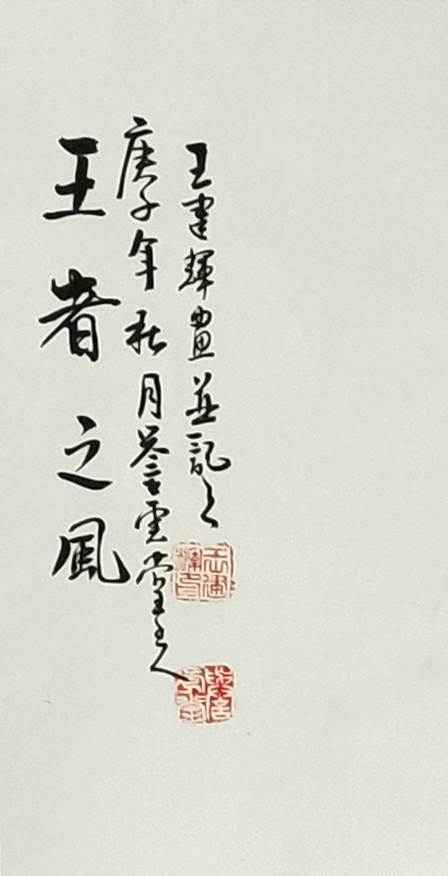 王者之風
庚子年秋月誉雲堂主人
王建輝畫並記之